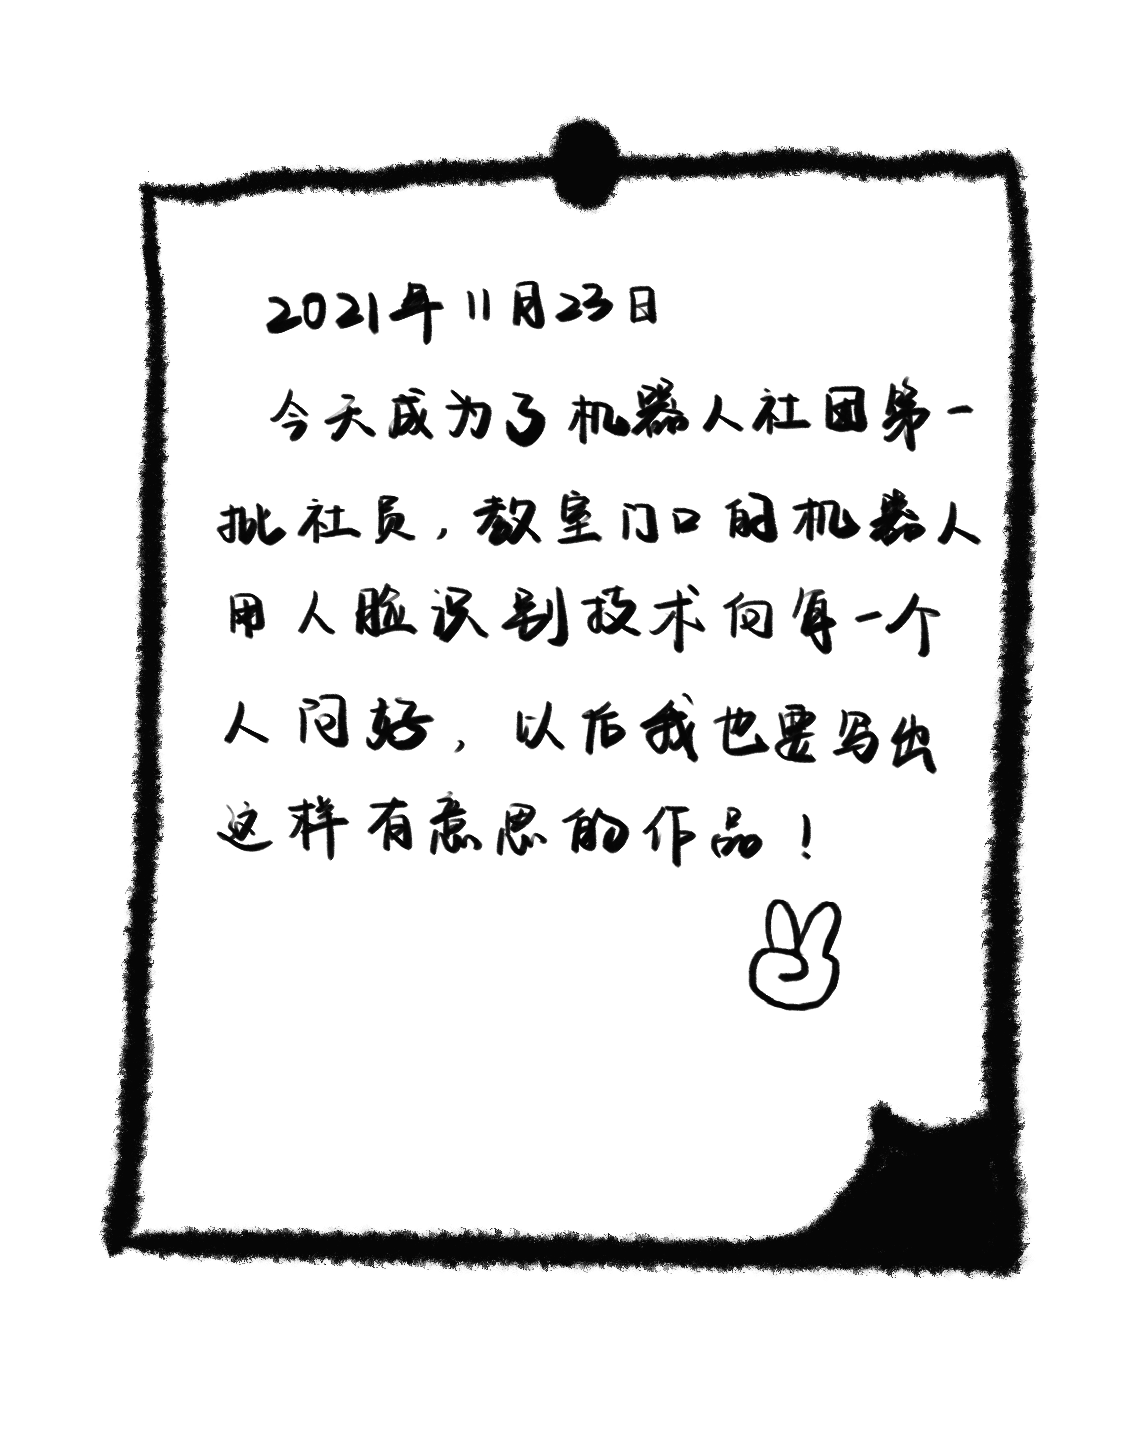 2021年11月23日
今天成为了机器人社团第一
批社员，教室门口的机器人
用人脸识别技术向每一个
人问好，以后我也要写出
这样有意思的作品！